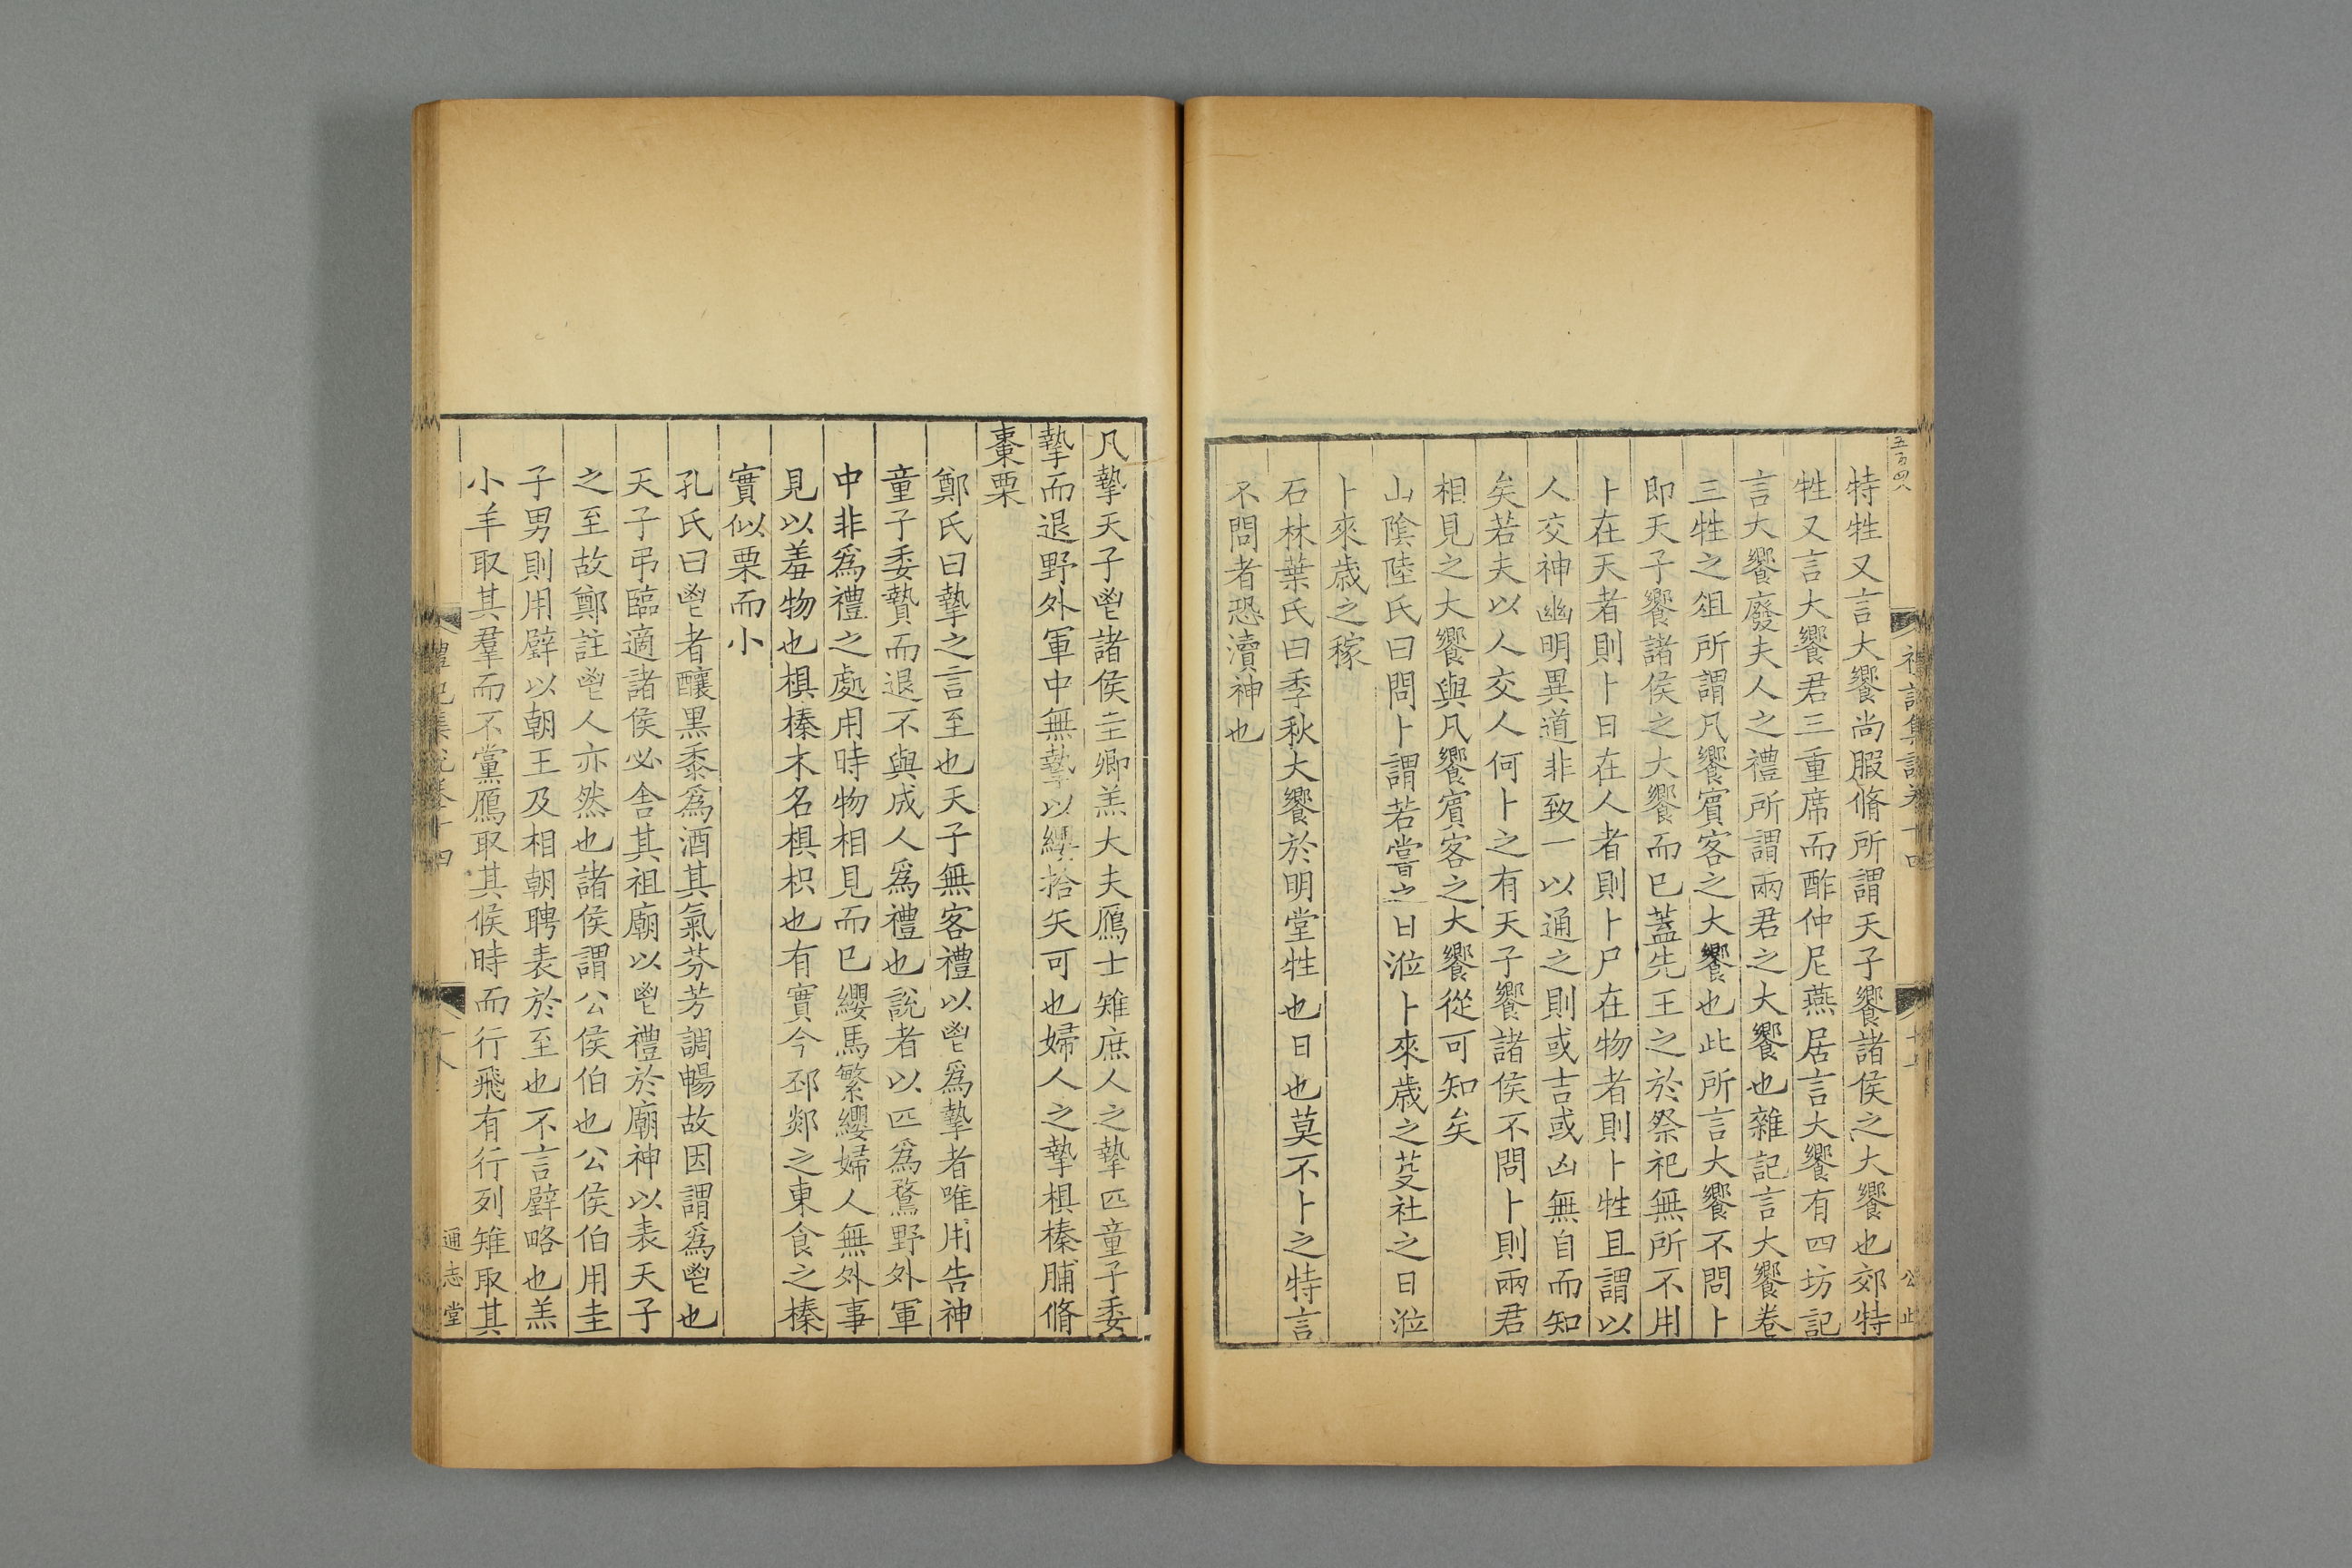 五百四八
特牲又言大饗尚腶脩所謂天子饗諸侯之大饗也郊特
牲又言大饗君三重席而酢仲尼燕居言大饗有四坊記
言大饗廢夫人之禮所謂兩君之大饗也雜記言大饗卷
三牲之俎所謂凡饗賓客之大饗也此所言大饗不問卜
即天子饗諸侯之大饗而已蓋先王之於祭祀無所不用
卜在天者則卜日在人者則卜尸在物者則卜牲且謂以
人交神幽明異道非致一以通之則或吉或凶無自而知
矣若夫以人交人何卜之有天子饗諸侯不問卜則兩君
相見之大饗與凡饗賓客之大饗從可知矣
山陰陸氏曰問卜謂若嘗之日涖卜來歲之芟社之日涖
卜來歲之稼
石林葉氏曰季秋大饗於明堂牲也日也莫不卜之特言
不問者恐瀆神也
凡摯天子鬯諸侯圭卿羔大夫鴈士雉庶人之摯匹童子委
摯而退野外軍中無摯以纓拾矢可也婦人之摯椇榛脯脩
棗栗
鄭氏曰摯之言至也天子無客禮以鬯爲摯者唯用告神
童子委贄而退不與成人爲禮也說者以匹爲鶩野外軍
中非爲禮之處用時物相見而已纓馬繁纓婦人無外事
見以羞物也椇榛木名椇枳也有實今邳郯之東食之榛
實似栗而小
孔氏曰鬯者釀黑黍爲酒其氣芬芳調暢故因謂爲鬯也
天子弔臨適諸侯必舍其祖廟以鬯禮於廟神以表天子
之至故鄭註鬯人亦然也諸侯謂公侯伯也公侯伯用圭
子男則用璧以朝王及相朝聘表於至也不言璧略也羔
小羊取其羣而不黨鴈取其候時而行飛有行列雉取其
禮記集說卷十四
十八
通志堂